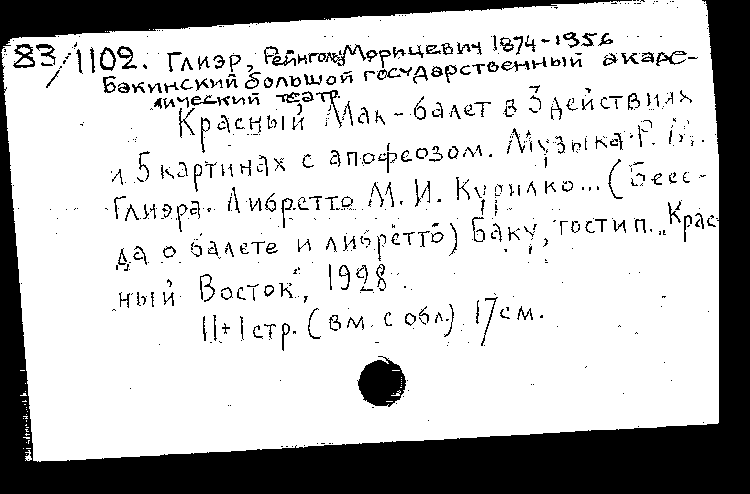 83/1102. Глиэр, Рейнгольд Морицевич 1874-1956
Бакинский большой государственный акаде-
мический театр
Красный Мак - балет в 3 действиях
и 5 картинах с апофеозом. Музыка Р. М.
Глиэра. Либретто М. И. Курилко... (Бесе-
да о балете и либретто) Баку, гостип. „Крас-
ный Восток", 1928.
11+1 стр. (вм. с обл.) 17 см.